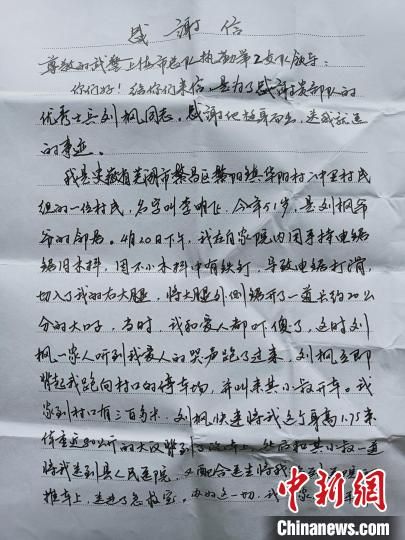 感谢信
尊敬的武警上海市总队执勤第2支队领导：
你们好！给你们来信，是为了感谢贵部队的
优秀士兵刘枫同志。感谢他挺身而出，送我就医
的事迹。
我是安徽省芜湖市繁昌区繁阳镇华阳村六中里村民
组的一位村民，名字叫李明飞，今年51岁，是刘枫爷
爷的邻居。4月20日下午，我在自家院内用手持电锯
锯旧木料，因不小木料中有铁钉，导致电锯打滑，
切入了我的右大腿，将大腿外侧锯开了一道长约20公
分的大口子，当时，我和爱人都吓傻了，这时刘
枫一家人听到我爱人的哭声跑了过来，刘枫立即
背起我跑向村口的停车场，并叫来其小叔开车。我
家到村口有三百多米，刘枫快速将我这个身高1.75米
体重近80公斤的大汉背到了汽车上，然后和其小叔一道
将我送到县人民医院，又配合医生将我
推车上，送进了急救室。做的这一切，我
中新网